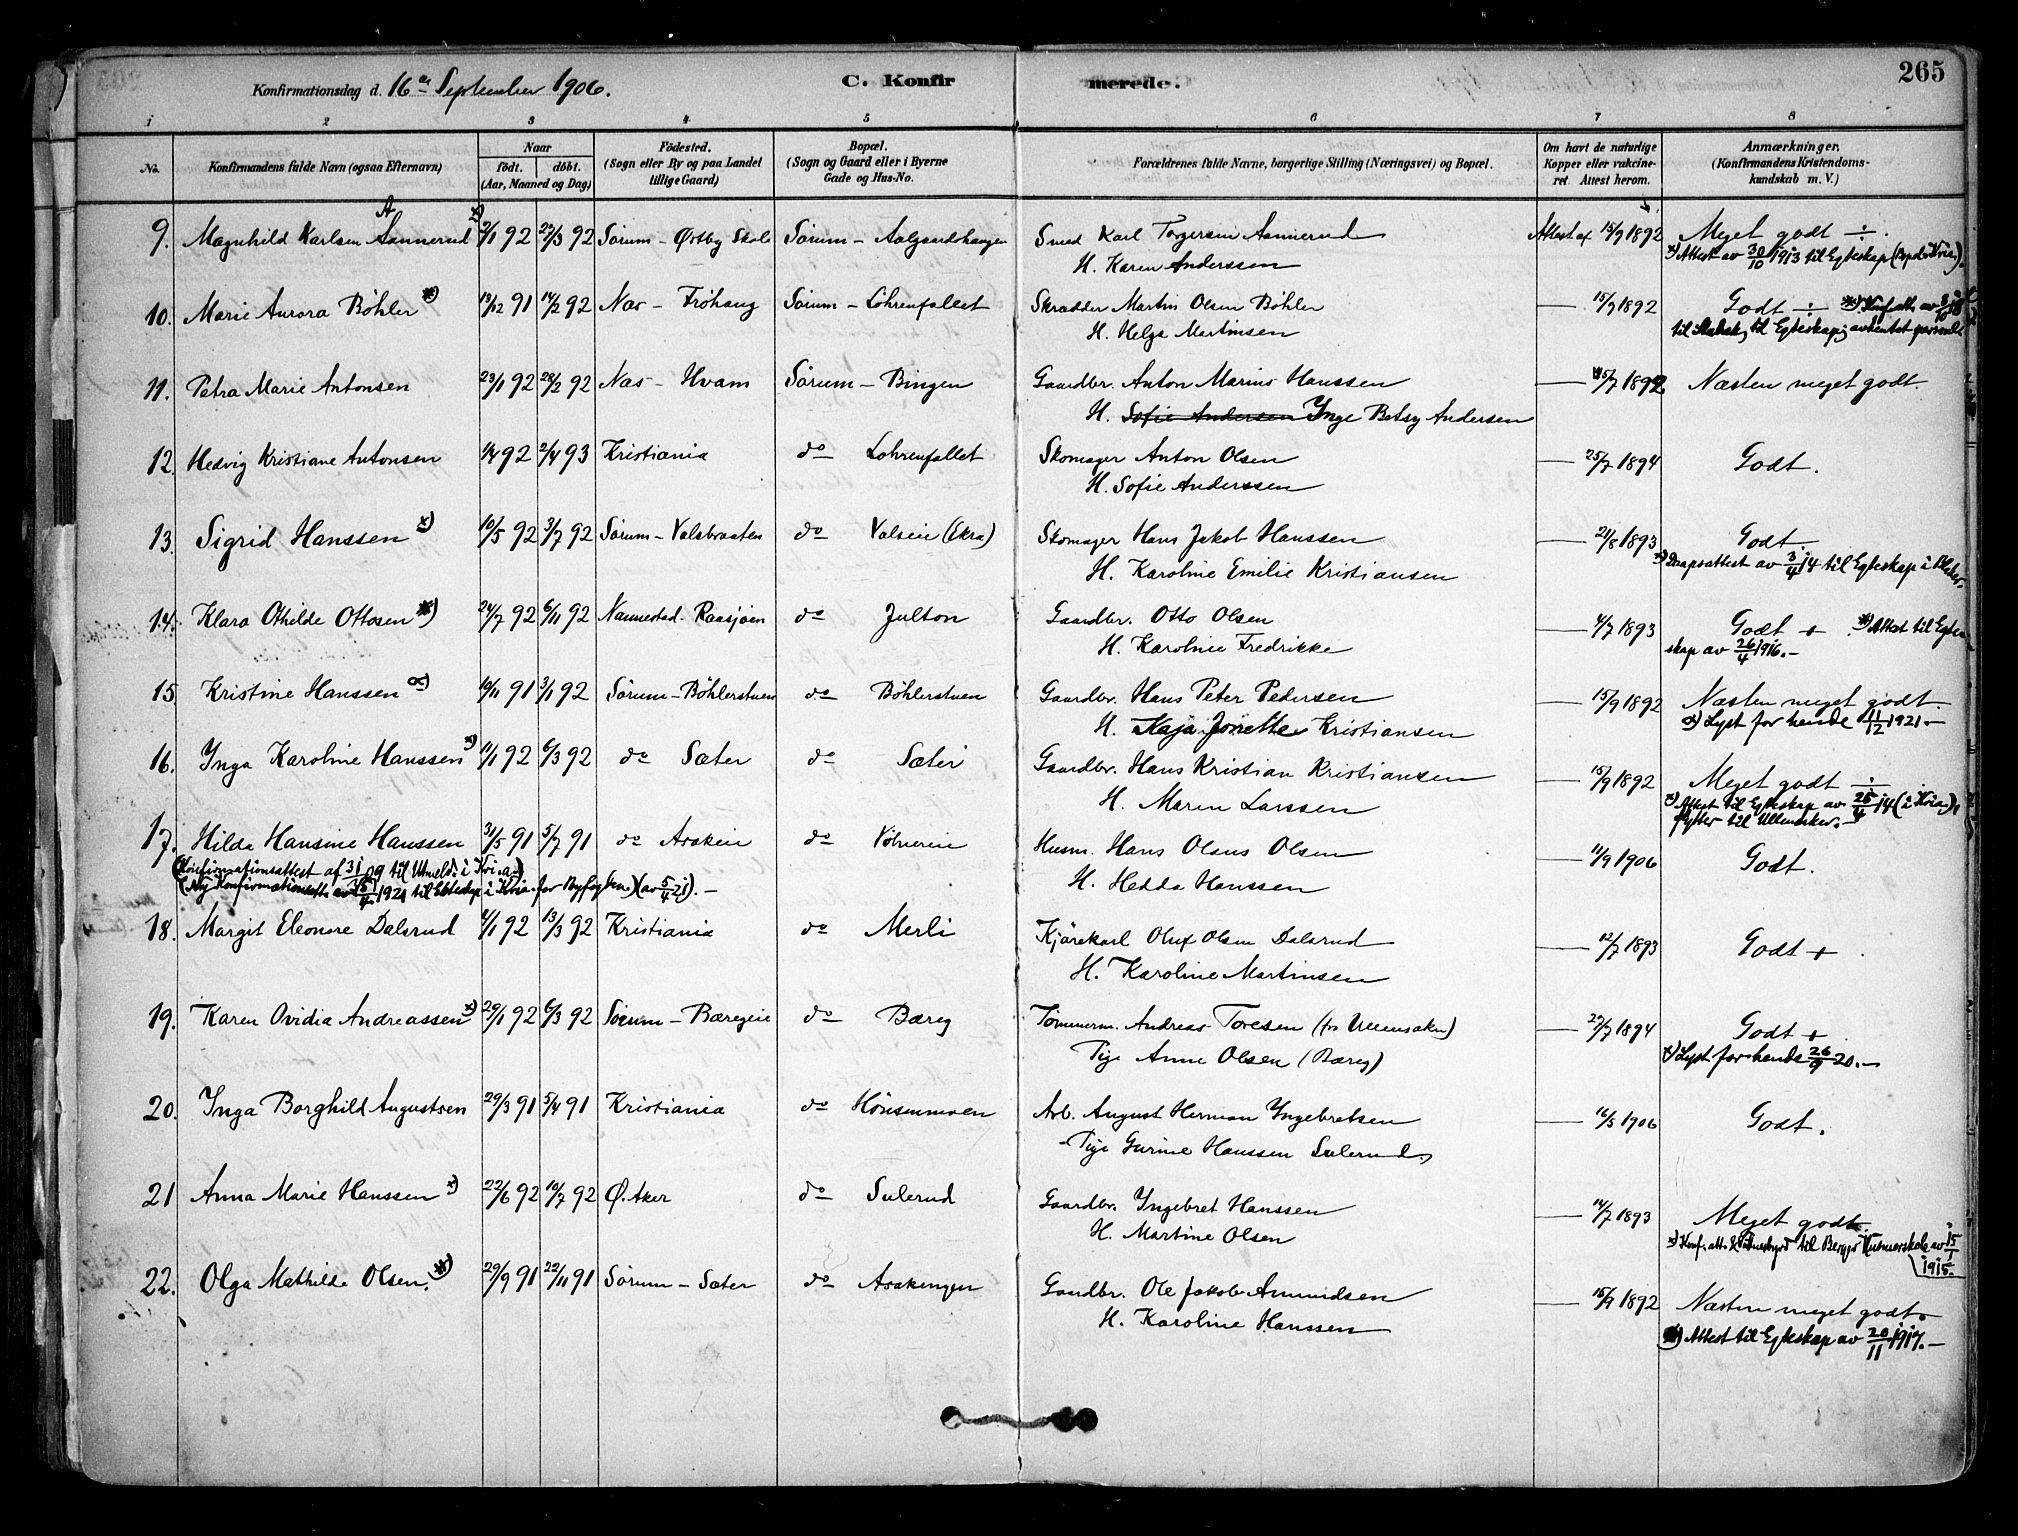 Konfirmationsdag d. 16de September 1906. C. Konfirmerede. 265
1 2 3 4 5 6 7 8
No. Konfirmandens fulde Navn (ogsaa Efternavn) Naar födt. döbt. (Aar, Maaned og Dag) Födested. (Sogn eller By og paa Landet tillige Gaard) Bopæl. (Sogn og Gaard eller i Byerne Gade og Hus-No. Forældrenes fulde Navne, borgerlige Stilling (Næringsvei) og Bopæl. Om havt de naturlige Kopper eller vakcineret Attest herom. Anmærkninger. (Konfirmandens Kristendomskundskab m. V.)
9. Magnhild Karlsen Aannerud x) 2/1 92 27/3 92 Sørum - Østby Skole Sørum - Aalgaardhaugen Smed Karl Torgersen Aannerud Attest af 15/9 1892 Meget godt ÷.
H. Karen Anderssen x) Attest av 30/10 1913 til Egteskap
10. Marie Aurora Bøhler x) 13/12 91 14/2 92 Næs - Frøhaug Sørum - Løhrenfallet Skrædder Martin Olsen Bøhler — 15/9 1892 Godt ÷
H. Helga Martinsen til Egteskap; avhentet personlt
11. Petra Marie Antonsen 23/1 92 28/2 92 Næs - Hvam Sørum - Bingen Gaardbr. Anton Marius Hanssen — 15/7 1892 Næsten meget godt
H. Sofie Andersen Inge Betsy Andersen
12. Hedvig Kristiane Antonsen 1/4 92 2/4 93 Kristiania do Lohrenfallet Skomager Anton Olsen — 25/7 1894 Godt.
H. Sofie Anderssen
13. Sigrid Hanssen x) 10/5 92 3/7 92 Sørum - Valsbraaten do Valseie (Ekra) Skomager Hans Jakob Hanssen — 21/8 1893 Godt
H. Karoline Emilie Kristiansen x) Daapsattest av 3/4 14 til Egteskap i
14. Klara Othilde Ottosen x) 24/7 92 6/11 92 Nannestad - Raasjøen do Julton Gaardbr. Otto Olsen — 4/7 1893 Godt + x) Attest til Egte
H. Karoline Fredrikke skap av 26/4 1916. -
15. Kristine Hanssen α) 10/11 91 3/1 92 Sørum - Bøhlerstuen do Bøhlerstuen Gaardbr. Hans Peter Pedersen — 15/9 1892 Næsten meget godt.
H. Kaja Jonette Kristiansen α) Lyst for hende 11/12 1921. -
16. Inga Karoline Hanssen x) 11/1 92 6/3 92 do Sæter do Sæter Gaardbr. Hans Kristian Kristiansen — 15/9 1892 Meget godt ÷
H. Maren Larssen x) Attest til Egteskap av 25/4 14 (i Kria.),
flytter til Ullensaker. -
17. Hilda Hansine Hanssen 31/5 91 5/7 91 do Asakeie do Husm. Hans Olaus Olsen — 11/9 1906 Godt.
(Konfirmationsattest af 31/ 09 til Utmeld. i Kria.) H. Hedda Hanssen
(Ny Konfirmationsatt. av 5/4 1921 til Egteskap i Kria. for (av 5/4 21). -
18. Margit Eleonore Dalsrud 4/1 92 13/3 92 Kristiania do Merli Kjørekarl Oluf Olsen Dalsrud — 12/7 1893 Godt +
H. Karoline Martinsen
19. Karen Ovidia Andreassen x) 29/1 92 6/3 92 Sørum - Bæregeie do Bæreg Tømmerm. Andreas Toresen (fra Ullensaker) — 27/7 1894 Godt +
Pige Anne Olsen (Bæreg) x) Lyst for hende 26/9 20. -
20. Inga Borghild Augustsen 29/3 91 5/4 91 Kristiania do Hønsemmoen Arb. August Herman Ingebretsen — 16/5 1906 Godt.
Pige Gurine Hanssen Sulerud
21 Anna Marie Hanssen x) 22/6 92 10/7 92 Ø. Aker do Sulerud Gaardbr. Ingebret Hanssen — 14/7 1893 Meget godt.
H. Martine Olsen x) Konf. att. til Bergs av 15/1
1915.
22. Olga Mathilde Olsen. x) 29/9 91 22/11 91 Sørum - Sæter do Asakengen Gaardbr. Ole Jakob Amundsen — 15/9 1892 Næsten meget godt.
H. Karoline Hanssen x) Attest til Egteskap av 20/11 1917. -